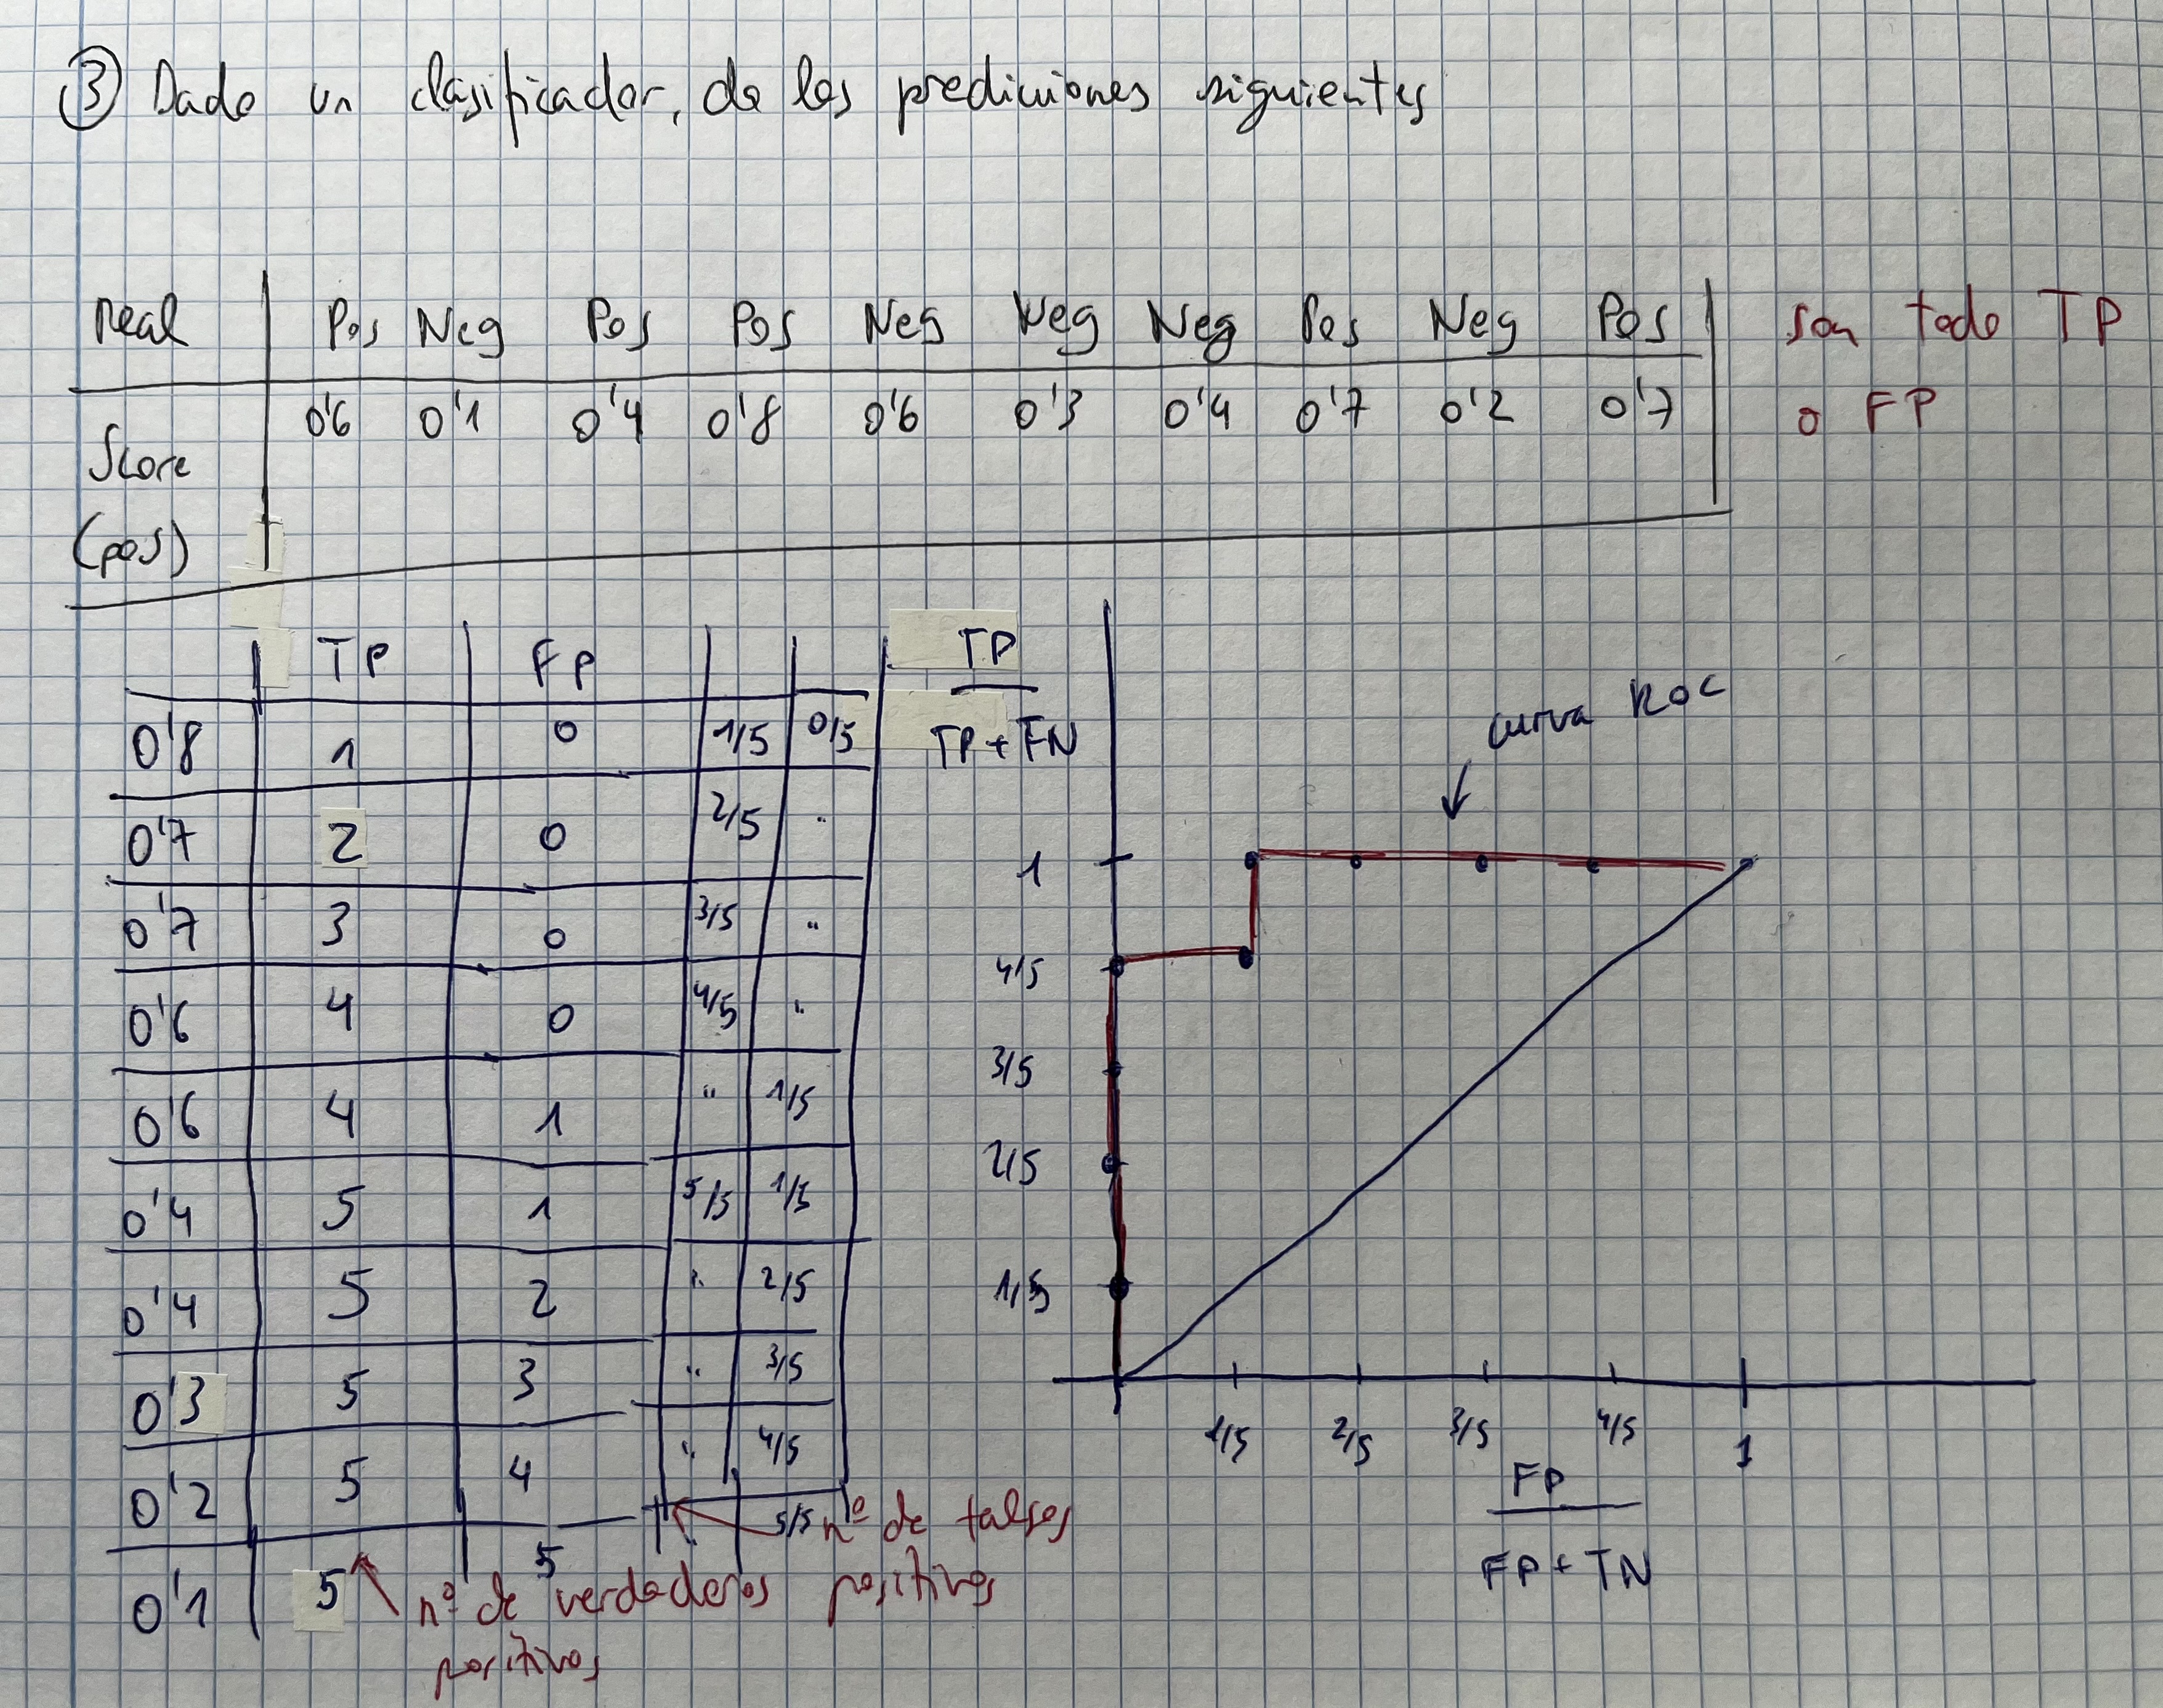 ③ Dado un clasificador, da las prediciones siguientes
Real Pos Neg Pos Pos Neg Neg Neg Pos Neg Pos
Score (pos) 0'6 0'1 0'4 0'8 0'6 0'3 0'4 0'7 0'2 0'7
son todo TP
o FP
TP FP
0'8 1 0 1/5 0/5
0'7 2 0 2/5 "
0'7 3 0 3/5 "
0'6 4 0 4/5 "
0'6 4 1 " 1/5
0'4 5 1 5/5 1/5
0'4 5 2 " 2/5
0'3 5 3 " 3/5
0'2 5 4 " 4/5
0'1 5 5 5/5
nº de verdaderos
positivos
nº de falsos
positivos
TP
TP + FN
curva ROC
1
4/5
3/5
2/5
1/5
1/5 2/5 3/5 4/5 1
FP
FP + TN